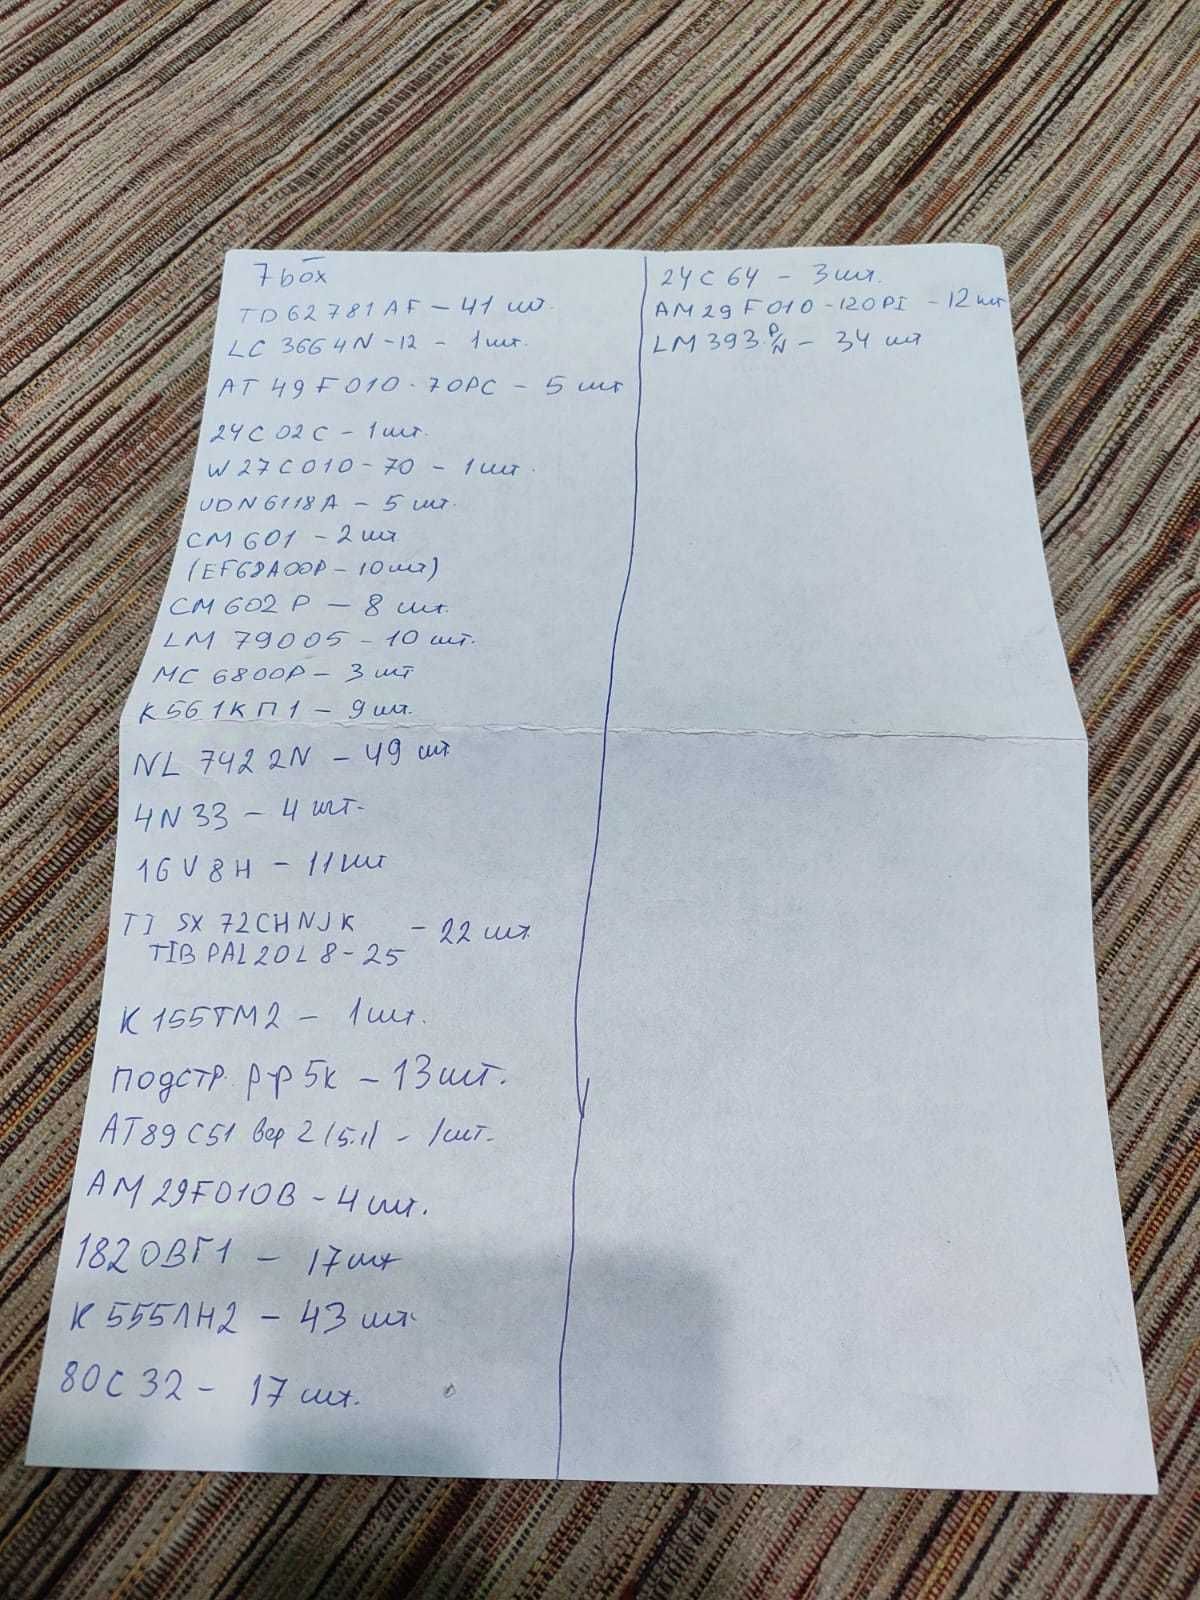 7 box
TD62781AF – 41 шт.
LC 3664N-12 – 1 шт.
AT 49F010-70PC – 5 шт
24C 02C – 1 шт.
W27C010-70 – 1 шт.
UDN6118A – 5 шт.
CM 601 – 2 шт
(EF68A00P – 10 шт)
CM 602 P – 8 шт.
LM 79005 – 10 шт.
MC 6800P – 3 шт
К561КП1 – 9 шт.
NL 7422N – 49 шт
4N33 – 4 шт.
16V8H – 11 шт
TI SX 72CHNJK – 22 шт.
TIBPAL20L8-25
К155ТМ2 – 1 шт.
подстр. р-р 5к – 13 шт.
AT89C51 вер 2 (5.1) – 1 шт.
AM29F010B – 4 шт.
1820ВГ1 – 17 шт
К555ЛН2 – 43 шт.
80C32 – 17 шт.
24C 64 – 3 шт.
AM29F010-120PI – 12 шт
LM393 P/N – 34 шт